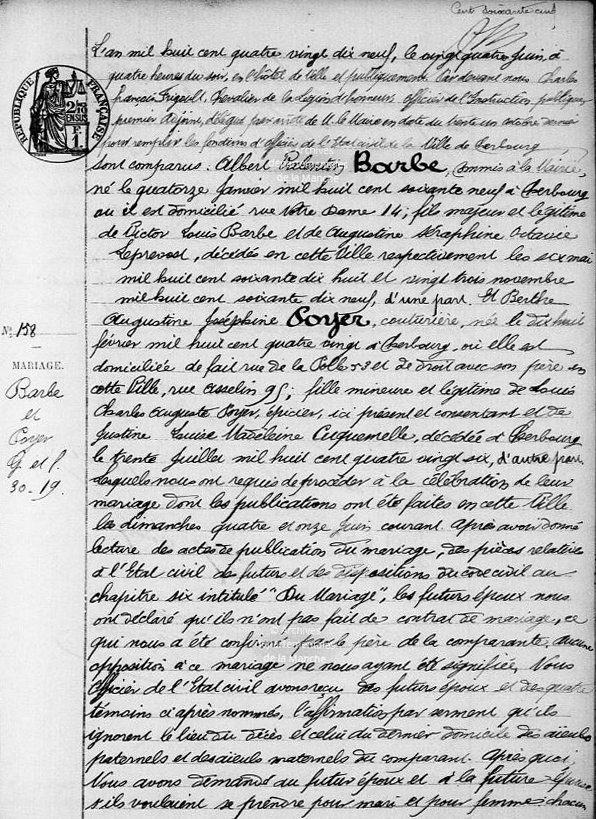 Cent soixante cinq
L'an mil huit cent quatre vingt dix neuf, le vingt quatre Juin, à
quatre heures du soir, en l'hôtel de Ville et publiquement. Pardevant nous Charles
François Frigoult, Chevalier de la Légion d'honneur, Officier de l'Instruction publique,
premier Adjoint, délégué par arrêté de M. le Maire en date du trente un octobre dernier
pour remplir les fonctions d'officier de l'Etat civil de la Ville de Cherbourg
sont comparus: Albert Barbe, Commis à la Mairie,
né le quatorze Janvier mil huit cent soixante neuf à Cherbourg
où il est domicilié rue Notre Dame 14; fils majeur et légitime
de Victor Louis Barbe et de Augustine Séraphine Octavie
Leprevost, décédés en cette Ville respectivement les six mai
mil huit cent soixante dix huit et vingt trois novembre
mil huit cent soixante dix neuf, d'une part. Et Berthe
Augustine Joséphine Poyer, couturière, née le dix huit
février mil huit cent quatre vingt à Cherbourg, où elle est
domiciliée de fait rue de la Polle 53 et de droit avec son père en
cette Ville, rue Asselin 95; fille mineure et légitime de Louis
Charles Auguste Poyer, épicier, ici présent et consentant et de
Justine Louise Madeleine Cuquemelle, décédée à Cherbourg
le trente Juillet mil huit cent quatre vingt six, d'autre part
Lesquels nous ont requis de procéder à la célébration de leur
mariage dont les publications ont été faites en cette Ville
les dimanches quatre et onze Juin courant. Après avoir donné
lecture des actes de publication du mariage, des pièces relatives
à l'Etat civil des futurs et des dispositions du code civil au
chapitre six intitulé "Du Mariage", les futurs époux nous
ont déclaré qu'ils n'ont pas fait de contrat de mariage, ce
qui nous a été confirmé par le père de la comparante, aucune
opposition à ce mariage ne nous ayant été signifiée, Nous
Officier de l'Etat civil avons reçu des futurs époux et des quatre
témoins ci après nommés, l'affirmation par serment qu'ils
ignorent le lieu du décès et celui du dernier domicile des aïeuls
paternels et des aïeuls maternels du comparant. Après quoi
Nous avons demandé au futur époux et à la future épouse
s'ils voulaient se prendre pour mari et pour femme, chacun
RÉPUBLIQUE FRANÇAISE
No. 158
MARIAGE.
Barbe
et
Poyer
G. et f.
30. 19.
© Archives
départementales
de la Manche